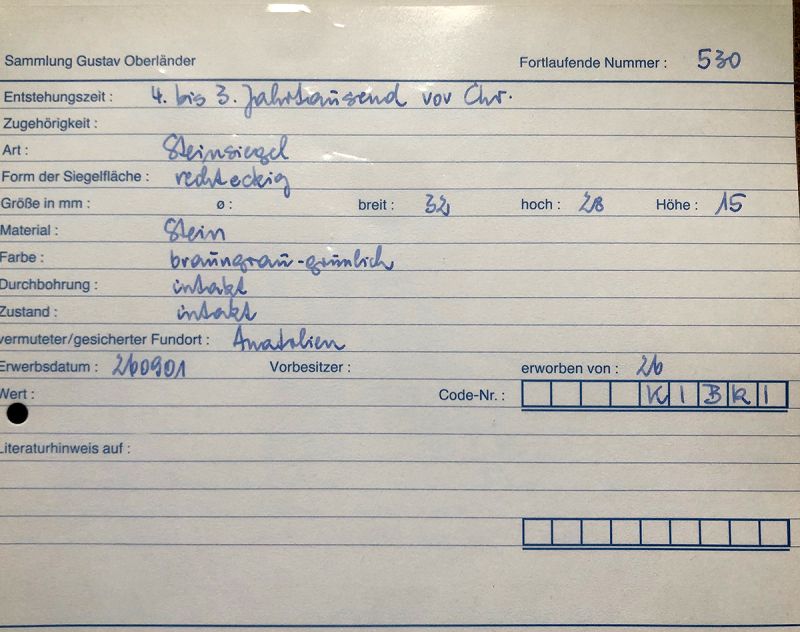 Sammlung Gustav Oberländer Fortlaufende Nummer : 530
Entstehungszeit : 4. bis 3. Jahrtausend vor Chr.
Zugehörigkeit :
Art : Steinsiegel
Form der Siegelfläche : rechteckig
Größe in mm : ø : breit : 32 hoch : 28 Höhe : 15
Material : Stein
Farbe : braungrau-grünlich
Durchbohrung : intakt
Zustand : intakt
vermuteter/gesicherter Fundort : Anatolien
Erwerbsdatum : 260901 Vorbesitzer : erworben von : 26
Wert : Code-Nr. : KIBRI
Literaturhinweis auf :